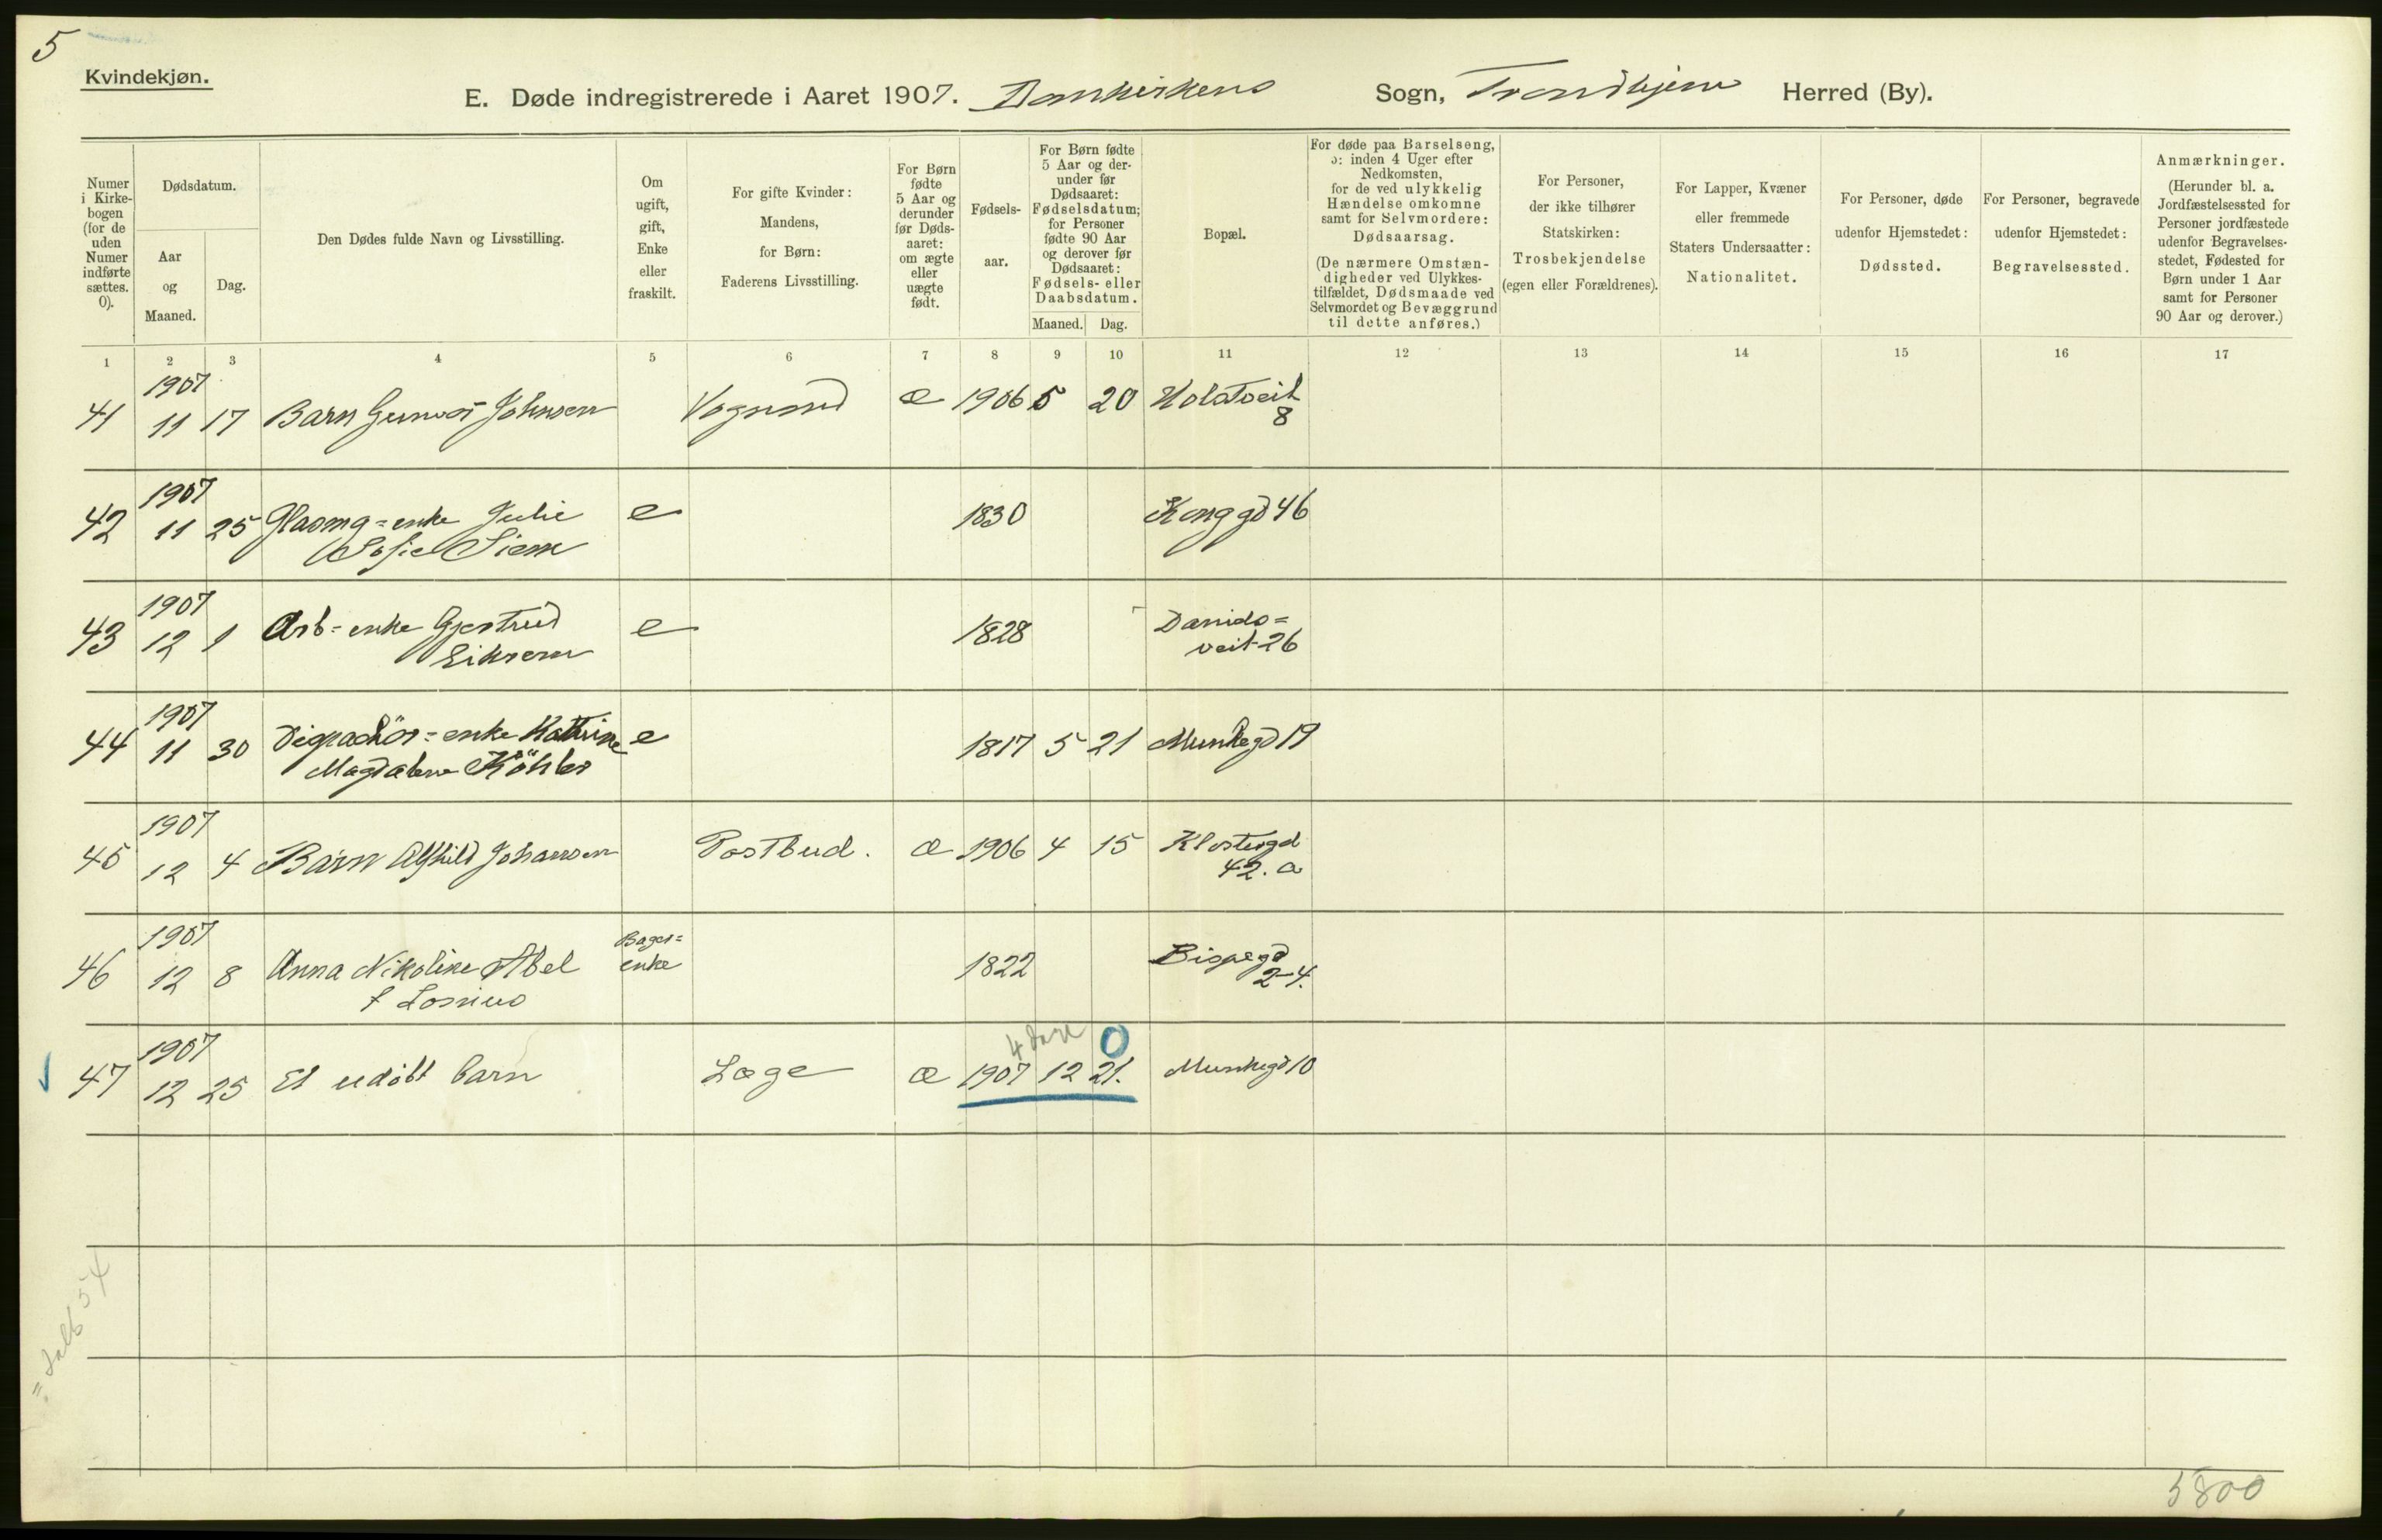 5
Kvindekjøn.
E. Døde indregistrerede i Aaret 1907. Domkirkens Sogn, Trondhjem Herred (By).
Numer i Kirke-bogen (for de uden Numer indførte sættes. 0).
Dødsdatum.
Aar og Maaned.
Dag.
Den Dødes fulde Navn og Livsstilling.
Om ugift, gift, Enke eller fraskilt.
For gifte Kvinder: Mandens, for Børn: Faderens Livsstilling.
For Børn fødte 5 Aar og derunder før Døds-aaret: om ægte eller uægte født.
Fødsels-aar.
For Børn fødte 5 Aar og der-under før Dødsaaret: Fødselsdatum; for Personer fødte 90 Aar og derover før Dødsaaret: Fødsels- eller Daabsdatum.
Maaned. Dag.
Bopæl.
For døde paa Barselseng, ɔ: inden 4 Uger efter Nedkomsten, for de ved ulykkelig Hændelse omkomne samt for Selvmordere: Dødsaarsag. (De nærmere Omstæn-digheder ved Ulykkes-tilfældet, Dødsmaade ved Selvmordet og Bevæggrund til dette anføres.)
For Personer, der ikke tilhører Statskirken: Trosbekjendelse (egen eller Forældrenes).
For Lapper, Kvæner eller fremmede Staters Undersaatter: Nationalitet.
For Personer, døde udenfor Hjemstedet: Dødssted.
For Personer, begravede udenfor Hjemstedet: Begravelsessted.
Anmærkninger. (Herunder bl. a. Jordfæstelsessted for Personer jordfæstede udenfor Begravelses-stedet, Fødested for Børn under 1 Aar samt for Personer 90 Aar og derover.)
1 2 3 4 5 6 7 8 9 10 11 12 13 14 15 16 17
1907
41 11 17 Barn Gunvor Johnsen Vognmd æ 1906 5 20
8
1907
42 11 25 Glasmg=enke Julie e 1830 Konggd 46
Sofie Siem
1907
43 12 1 Arb=enke Gjertrud e 1828 Davids=
Eiksem veit 26
1907
44 11 30 enke Katrine e 1817 5 21 Munkegd 19
Magdalene Köhler
1907
45 12 4 Barn Alfhild Johansen Postbud. æ 1906 4 15 Klostergd
42. a
1907
46 12 8 Anna Nikoline Abel Bager=enke 1822 Bispegd
2-4.
f Lossius
4 dage 0
1907
47 12 25 Et udöbt barn Læge æ 1907 12 21. Munkegd 10
54
5800